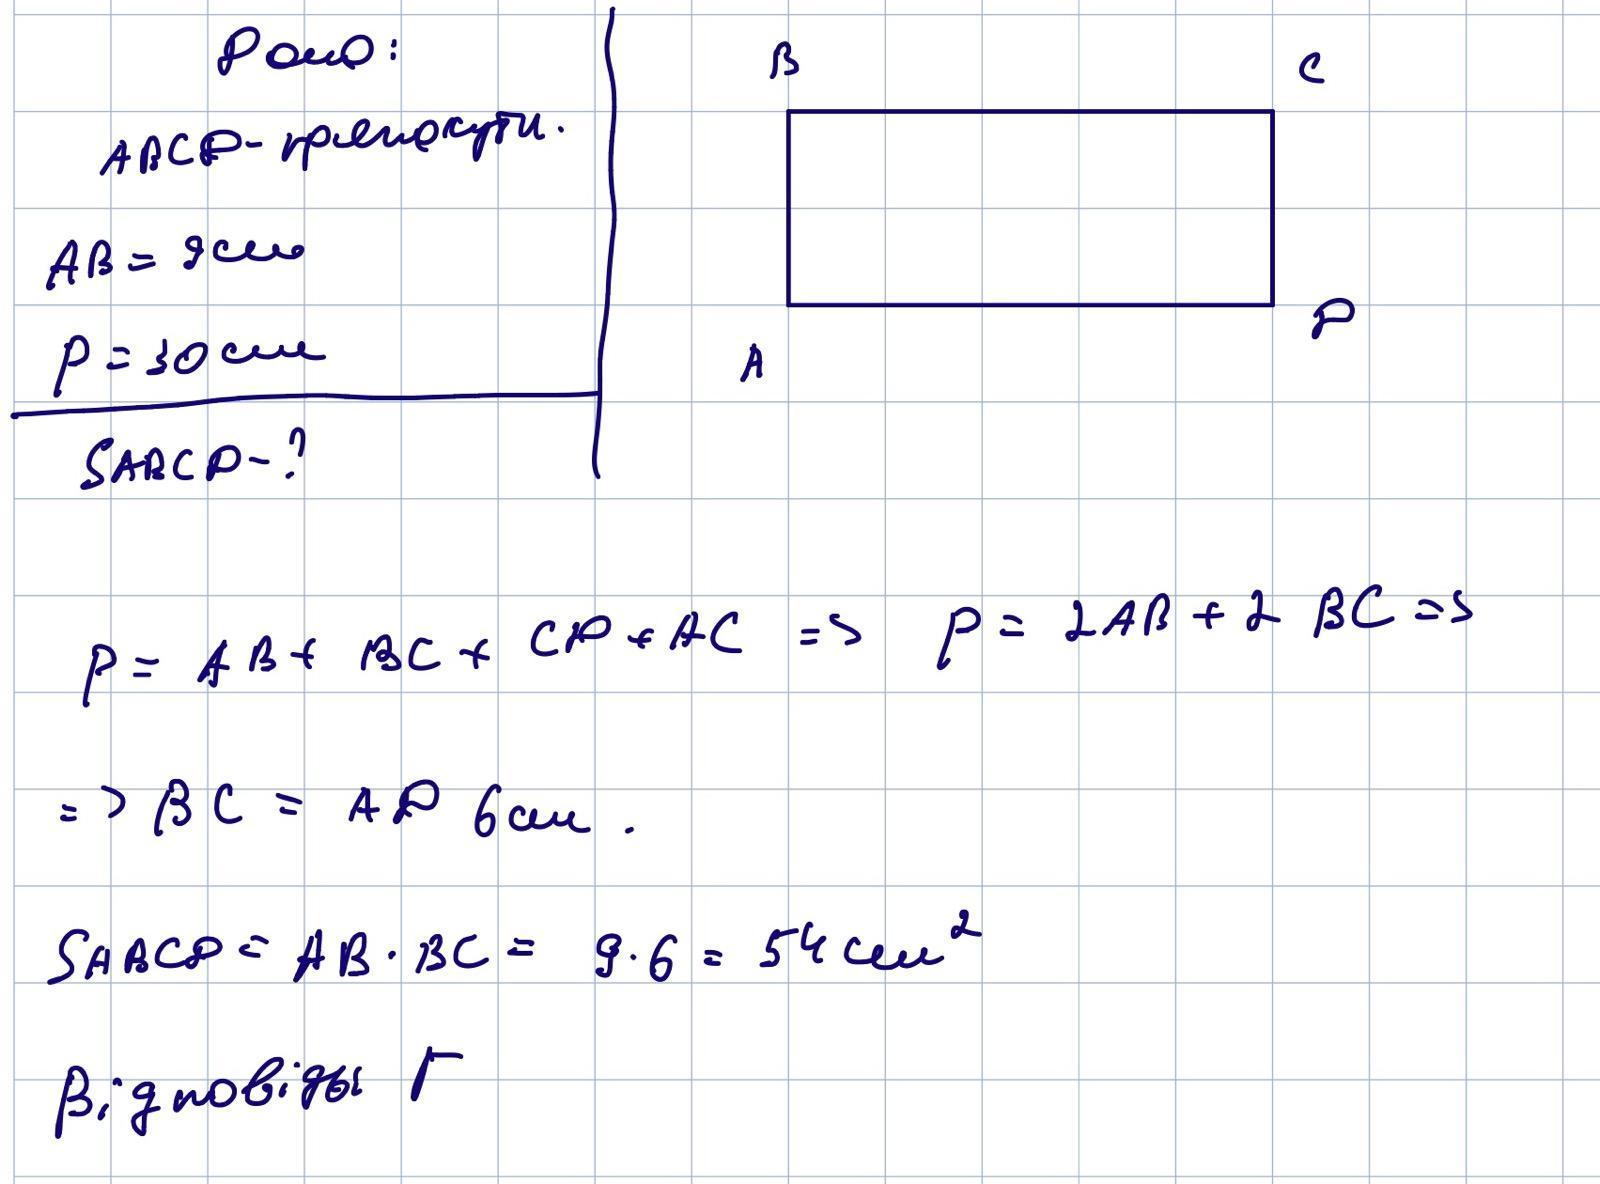 Дано:
ABCD - прямокутн.
AB = 9 см
P = 30 см
SABCD - ?
B
C
A
D
P = AB + BC + CD + AC => P = 2AB + 2 BC =>
=> BC = AD 6 см.
SABCD = AB · BC = 9 · 6 = 54 см²
Відповідь Г